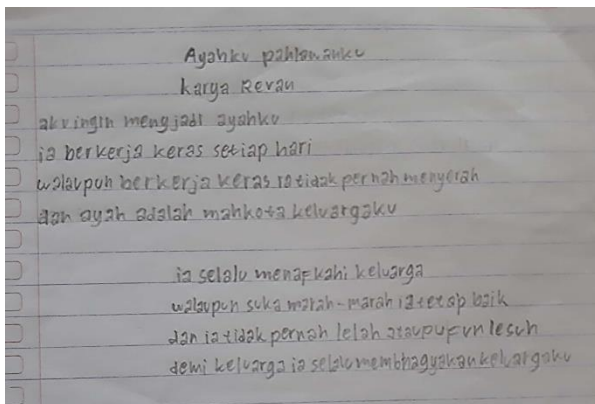 Ayahku pahlawanku
karya Revan
aku ingin mengjadi ayahku
ia berkerja keras setiap hari
walaupun berkerja keras ia tidak pernah menyerah
dan ayah adalah mahkota keluargaku
ia selalu menafkahi keluarga
walaupun suka marah-marah ia tetap baik
dan ia tidak pernah lelah lesuh
demi keluarga ia selalu keluargaku